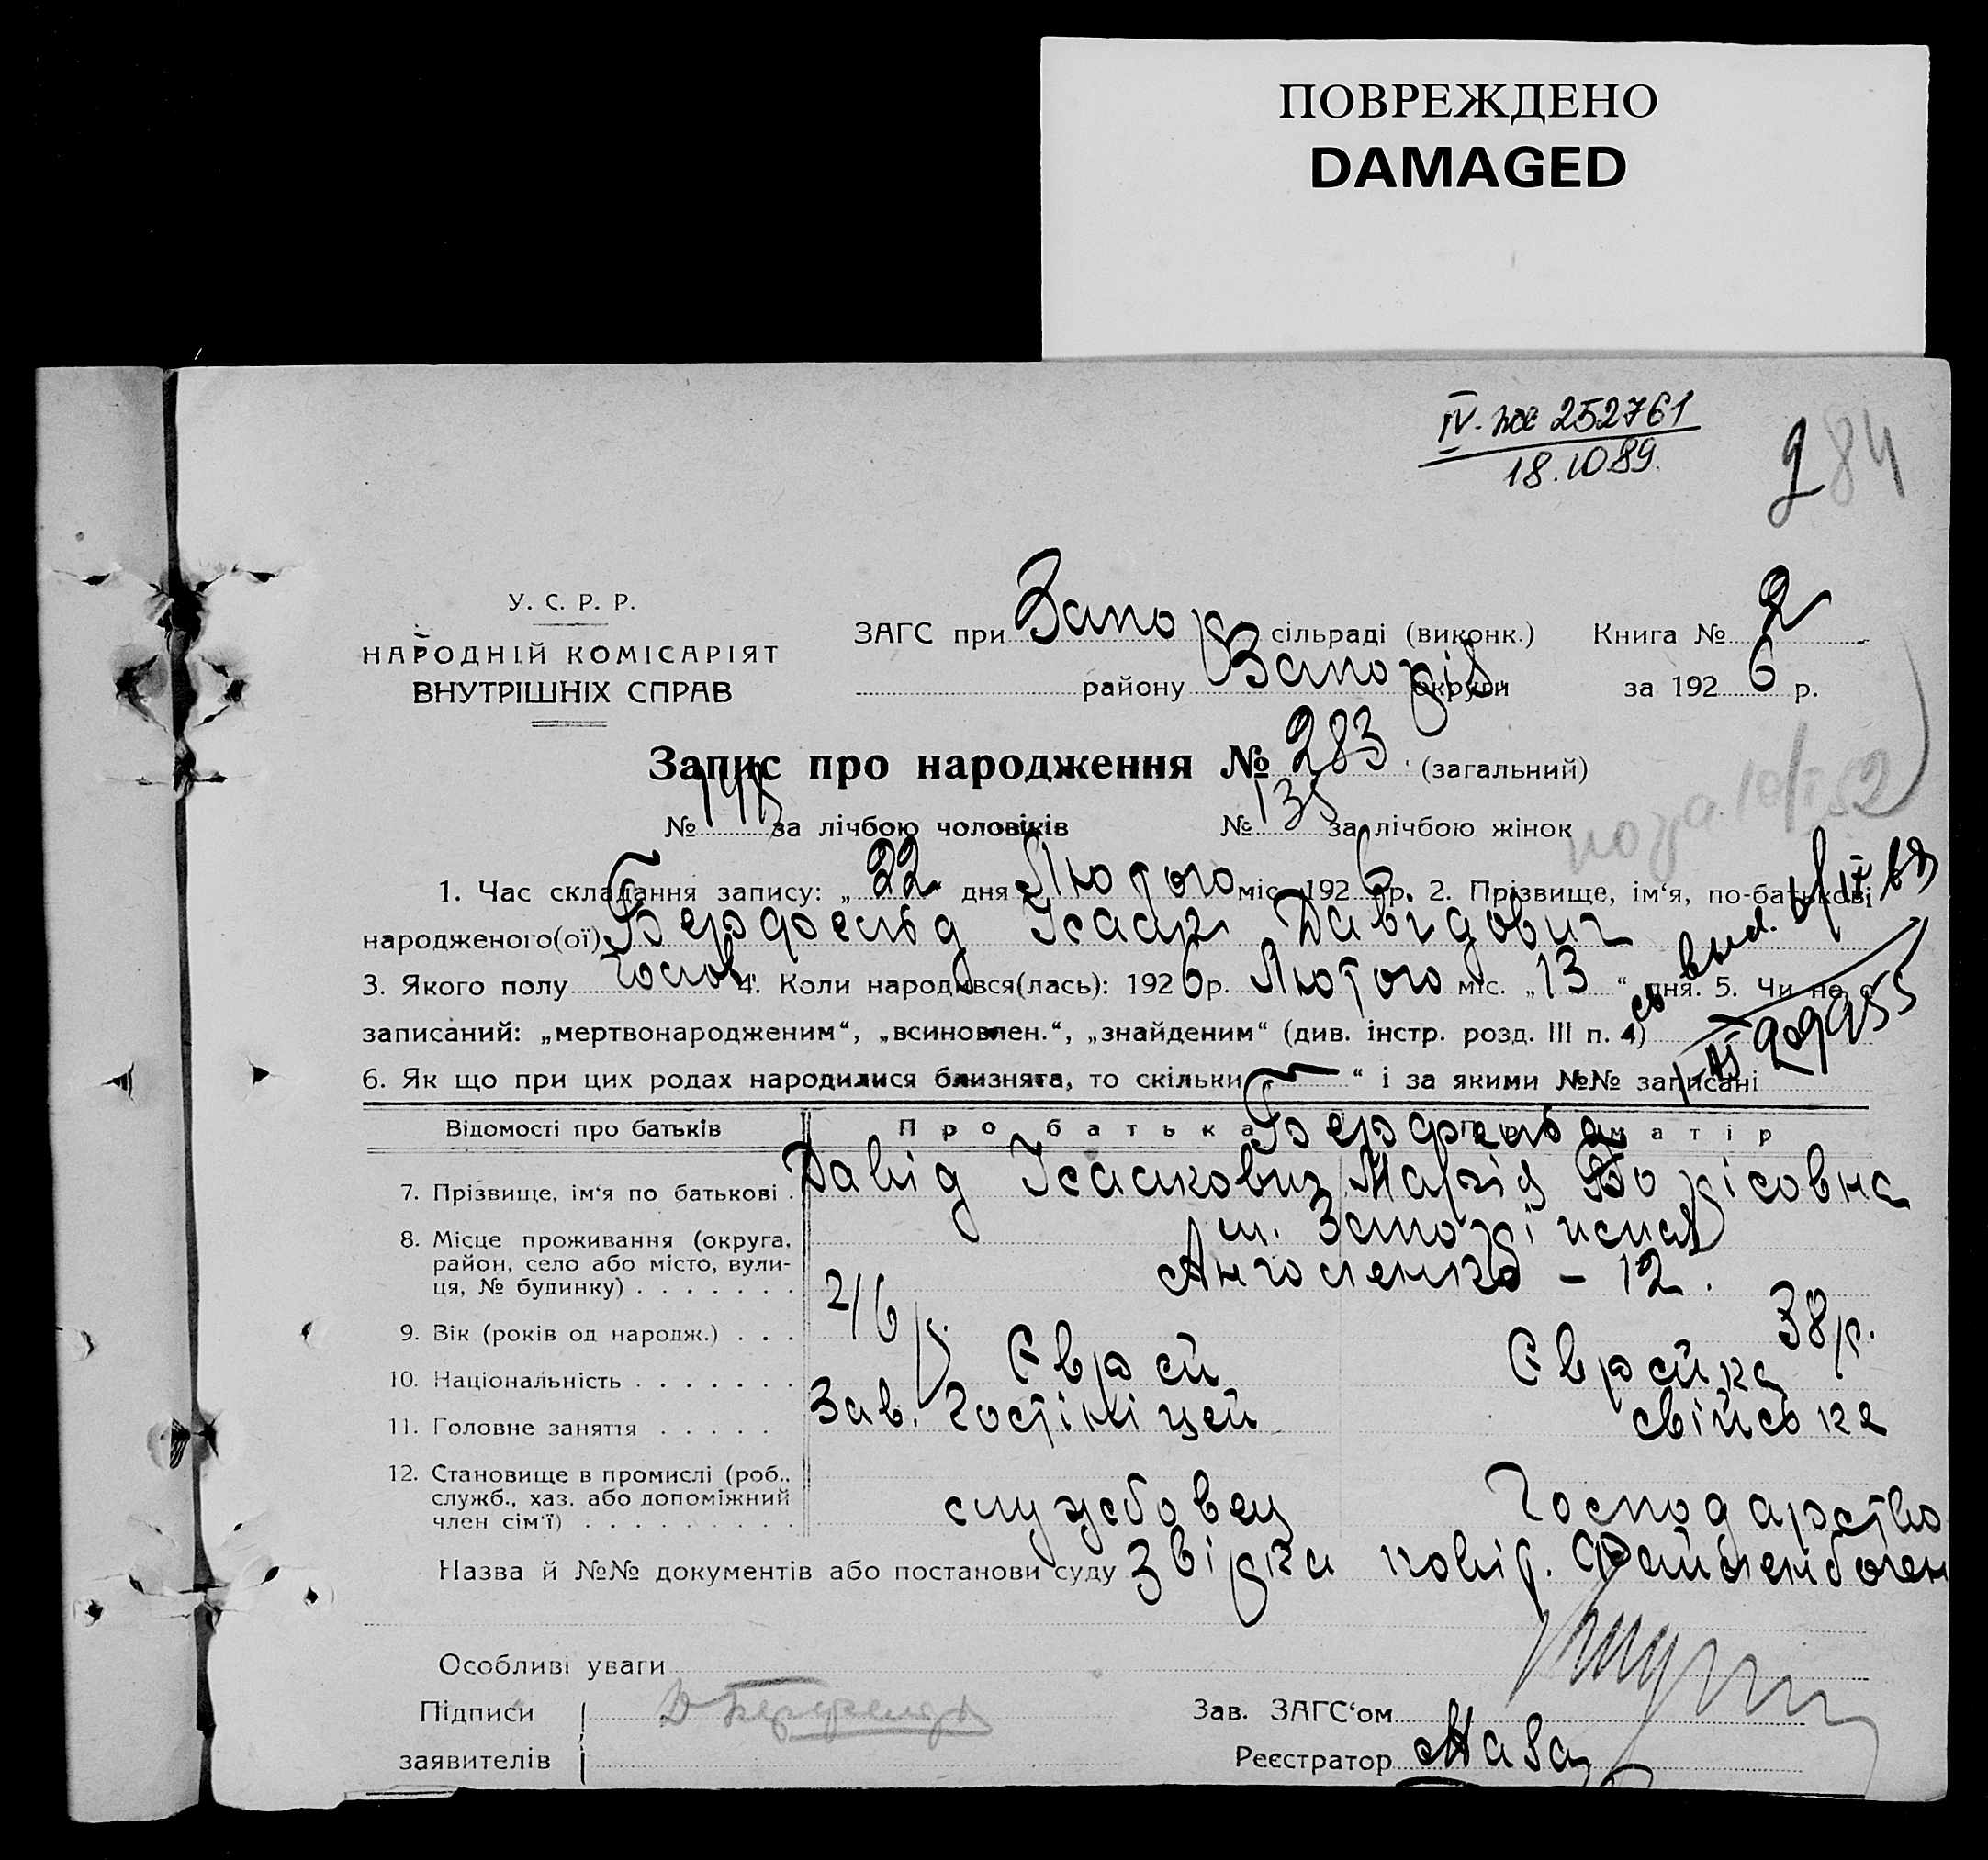 ПОВРЕЖДЕНО
DAMAGED
IV-жс 252761
18.10.89.
284
У. С. Р. Р.
НАРОДНІЙ КОМІСАРІЯТ
ВНУТРІШНІХ СПРАВ
ЗАГС при Запор сільраді (виконк.) Книга № 2
району Запоріз. округи за 1926 р.
Запис про народження № 283 (загальний)
№ за лічбою чоловіків № 135 за лічбою жінок
1. Час складання запису: „22“ дня Лютого міс. 1926 р. 2. Прізвище, ім‘я, по-батькові
народженого(ої) Берфельд Ісаак Давідович
3. Якого полу Чолов. 4. Коли народився(лась): 1926 р. Лютого міс. „13“ дня. 5. Чи не є
записаний: „мертвонародженим“, „всиновлен.“, „знайденим“ (див. інстр. розд. III п. 4)
909955
6. Як що при цих родах народилися близнята, то скільки “ і за якими №№ записані
Відомості про батьків Про батька Про матір
Берфельд
7. Прізвище, ім‘я по батькові . Давід Ісаакович Марія Борісовна
8. Місце проживання (округа, район, село або місто, вулиця, № будинку) . . . . . . . м. Запоріжжя
Анголенко – 12.
9. Вік (років од народж.) . . . 38 р.
10. Національність . . . . . . . Єврей Єврейка
11. Головне заняття . . . . . Зав. Гостініцей свійське
12. Становище в промислі (роб., служб., хаз. або допоміжний член сім‘ї) . . . . . . . . . службовец Господарство
Назва й №№ документів або постанови суду Звірка
Особливі уваги
Підписи Д Берфельд Зав. ЗАГС‘ом
заявителів Реєстратор